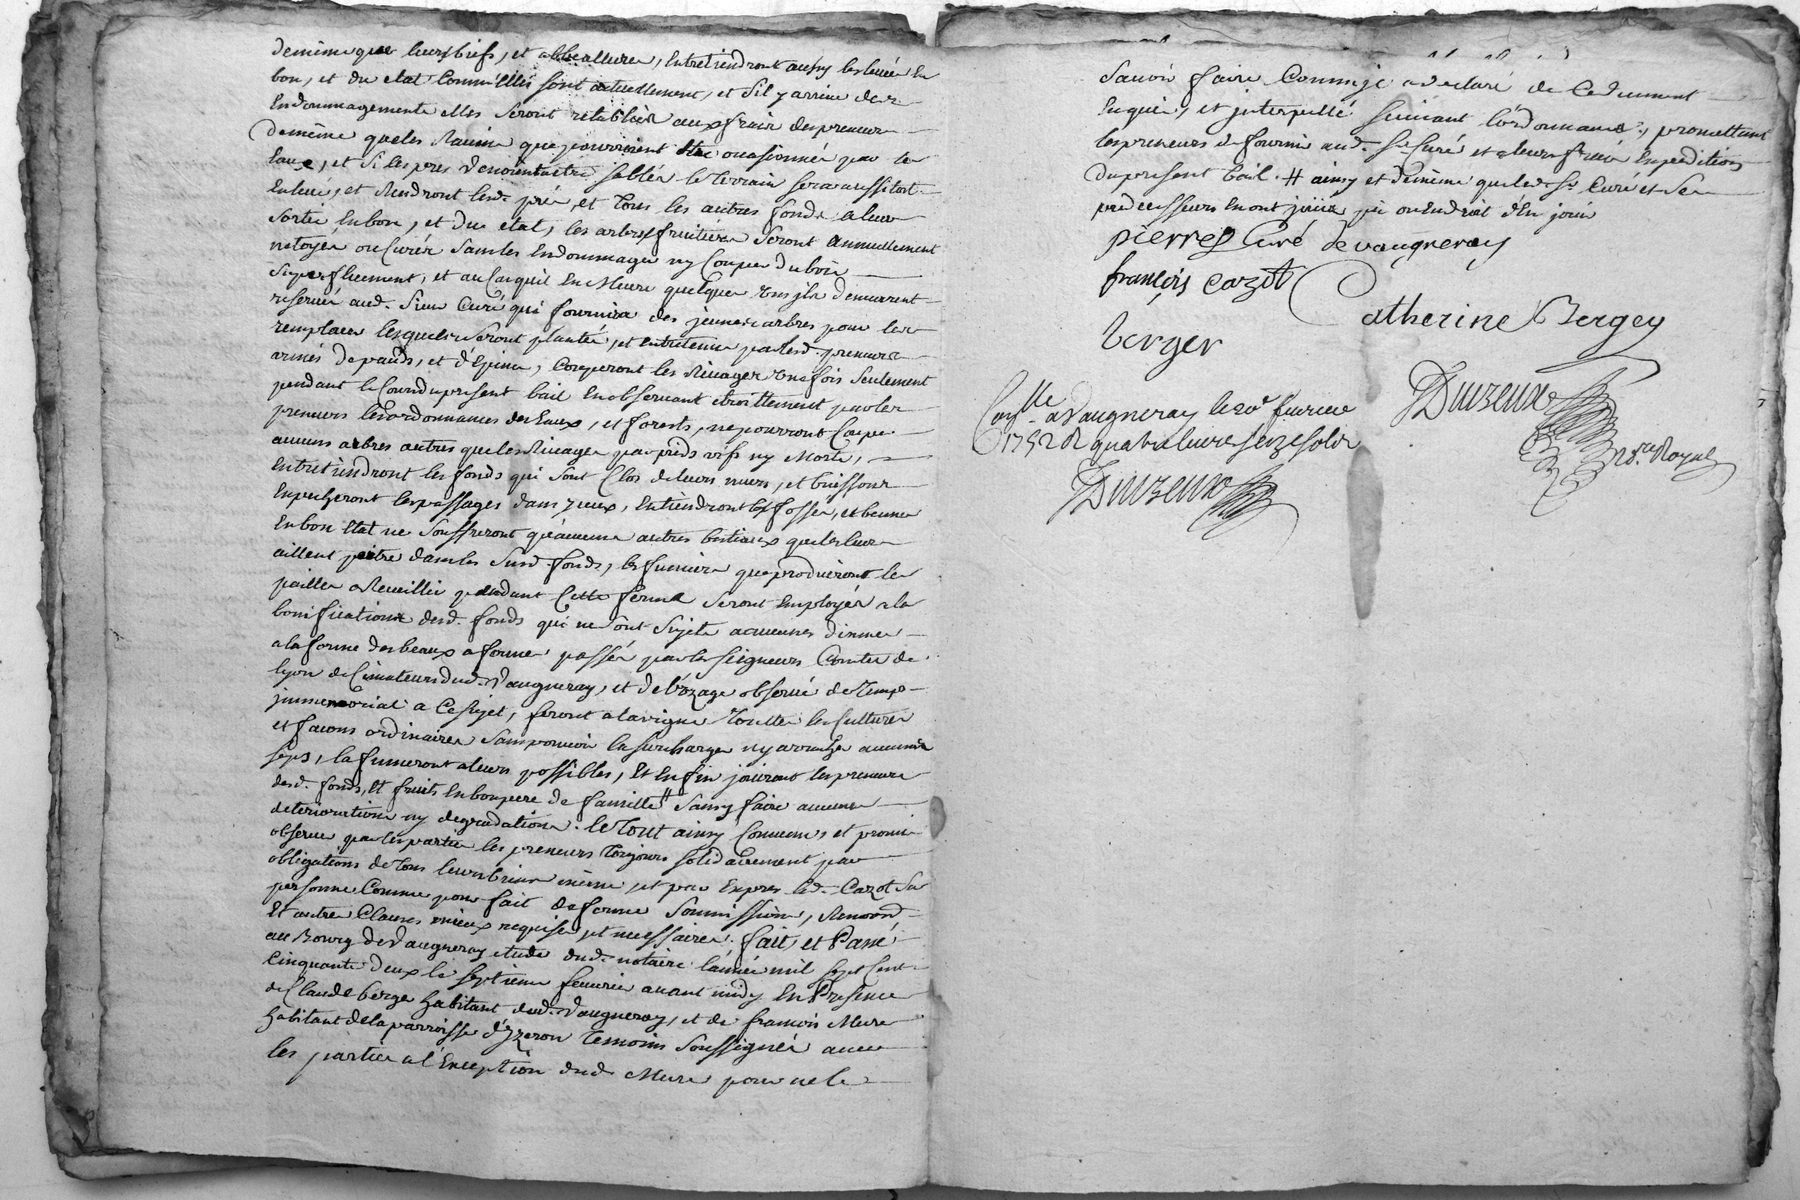 demême que leurs biefs, et abbeallures, Entretiendront aussy les levée En
bon, et du etat Comm'Elles sont actuellement, et s'il y arrive des
Endommagements elles seront retablies aux frais des preneurs
demême que les Ravins que pourroient être ocasionné par les
Eaux, et si les prés venoient a être sablés le terrain sera aussitost
Enlevé, et Rendront lesd. pré, et tous les autres fonds a leur
sortie, En bon, et du etat, les arbres fruitiers seront annuellement
netoyer ou Curés sans les Endommager ny Couper du bois
superfluement, et au Cas qu'il En Meure quelques Uns ils demeurent
reservé aud. Sieur Curé qui fournira des jeunes arbres pour les
remplacer lesquels seront plantés, et entretenus par lesd. preneurs
armés de pauds, et d'Epines, Couperont les Rivages Une fois seulement
pendant le Cours du present bail En observant étroittement par les
preneurs les ordonnances des Eaux, et forests, ne pourront Couper
aucuns arbres autres que les Rivages par pieds vifs ny Morts,
Entretiendront les fonds qui sont Clos de leurs murs, et buissons
Empecheront les passages dans yceux, Entiendront les fossés, et
En bon Etat ne souffriront qu'aucuns autres bestiaux que les leurs
aillent paitre dans les susd. fonds, les fumiers que produiront les
pailles a Recueillir pendant Cette ferme seront Employés a la
bonification desd. fonds qui ne sont sujets a aucunes dixmes
a la forme des beaux a ferme passés par les seigneurs Comtes de
Lyon deCimateurs dud. Vaugneray, et de l'Uzage observé de temps
jmmemorial a Ce sujet, feront a la vigne toutes les Cultures
et facons ordinaires sans pouvoir la surcharger ny arracher aucuns
seps, la fumeront a leurs possibles, Et Enfin jouiront les preneurs
desd. fonds, Et fruits En bon pere de famille # sans y faire aucunes
deteriorations ny degradations. le tout ainsy Convenu, et promis
observer par les parties les preneurs toujours solidairement par
obligations de tous leurs biens même, et par Expres led. Cazot sa
personne Comme pour fait de ferme soumissions, Renond.
Et autres Clauses mieux requises, et necessaires. fait, et Passé
au Bourg de Vaugneray etude dud. notaire l'année mil sept Cent
Cinquante deux le septieme fevrier avant midy En Presence
de Claude berger habitant dud. Vaugneray, et de francois Mure
habitant de la parroisse d'Yzeron temoins soussignés avec
les parties a l'Exception dud. Mure pour ne le
savoir faire Comme jl a declaré de Ce duement
Enquis, et jnterpellé suivant l'ordonnance, promettant
les preneurs de fournir aud. Sr Curé et a leurs frais Expedition
du present bail. # ainsy et demême que led. Sr Curé et ses
predecesseurs En ont joüis, pû ou En droit d'En jouir
pierres Curé de vaugneray
françois cazot
Catherine Bergey
berger
Conlle a Vaugneray le 20e fevrier
1752 R quatre livres seize sols
Duizeux
Duizeux
No.re Royal